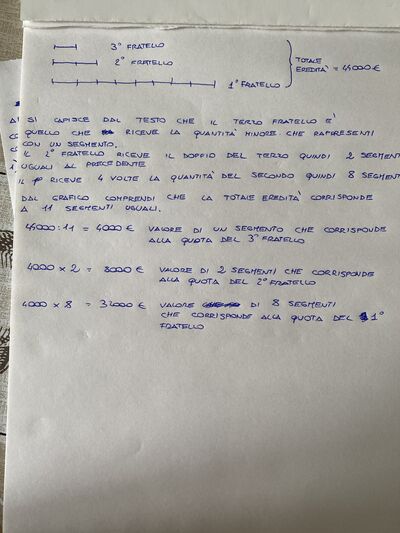 3° FRATELLO
2° FRATELLO
1° FRATELLO
TOTALE
EREDITÀ = 44000 €
SI CAPISCE DAL TESTO CHE IL TERZO FRATELLO È
QUELLO CHE RICEVE LA QUANTITÀ MINORE CHE RAPPRESENTI
CON UN SEGMENTO.
IL 2° FRATELLO RICEVE IL DOPPIO DEL TERZO QUINDI 2 SEGMENTI
UGUALI AL PRECEDENTE
IL 1° RICEVE 4 VOLTE LA QUANTITÀ DEL SECONDO QUINDI 8 SEGMENTI
DAL GRAFICO COMPRENDI CHE LA TOTALE EREDITÀ CORRISPONDE
A 11 SEGMENTI UGUALI.
44000 : 11 = 4000 € VALORE DI UN SEGMENTO CHE CORRISPONDE
ALLA QUOTA DEL 3° FRATELLO
4000 x 2 = 8000 € VALORE DI 2 SEGMENTI CHE CORRISPONDE
ALLA QUOTA DEL 2° FRATELLO
4000 x 8 = 32000 € VALORE DI 8 SEGMENTI
CHE CORRISPONDE ALLA QUOTA DEL 1°
FRATELLO